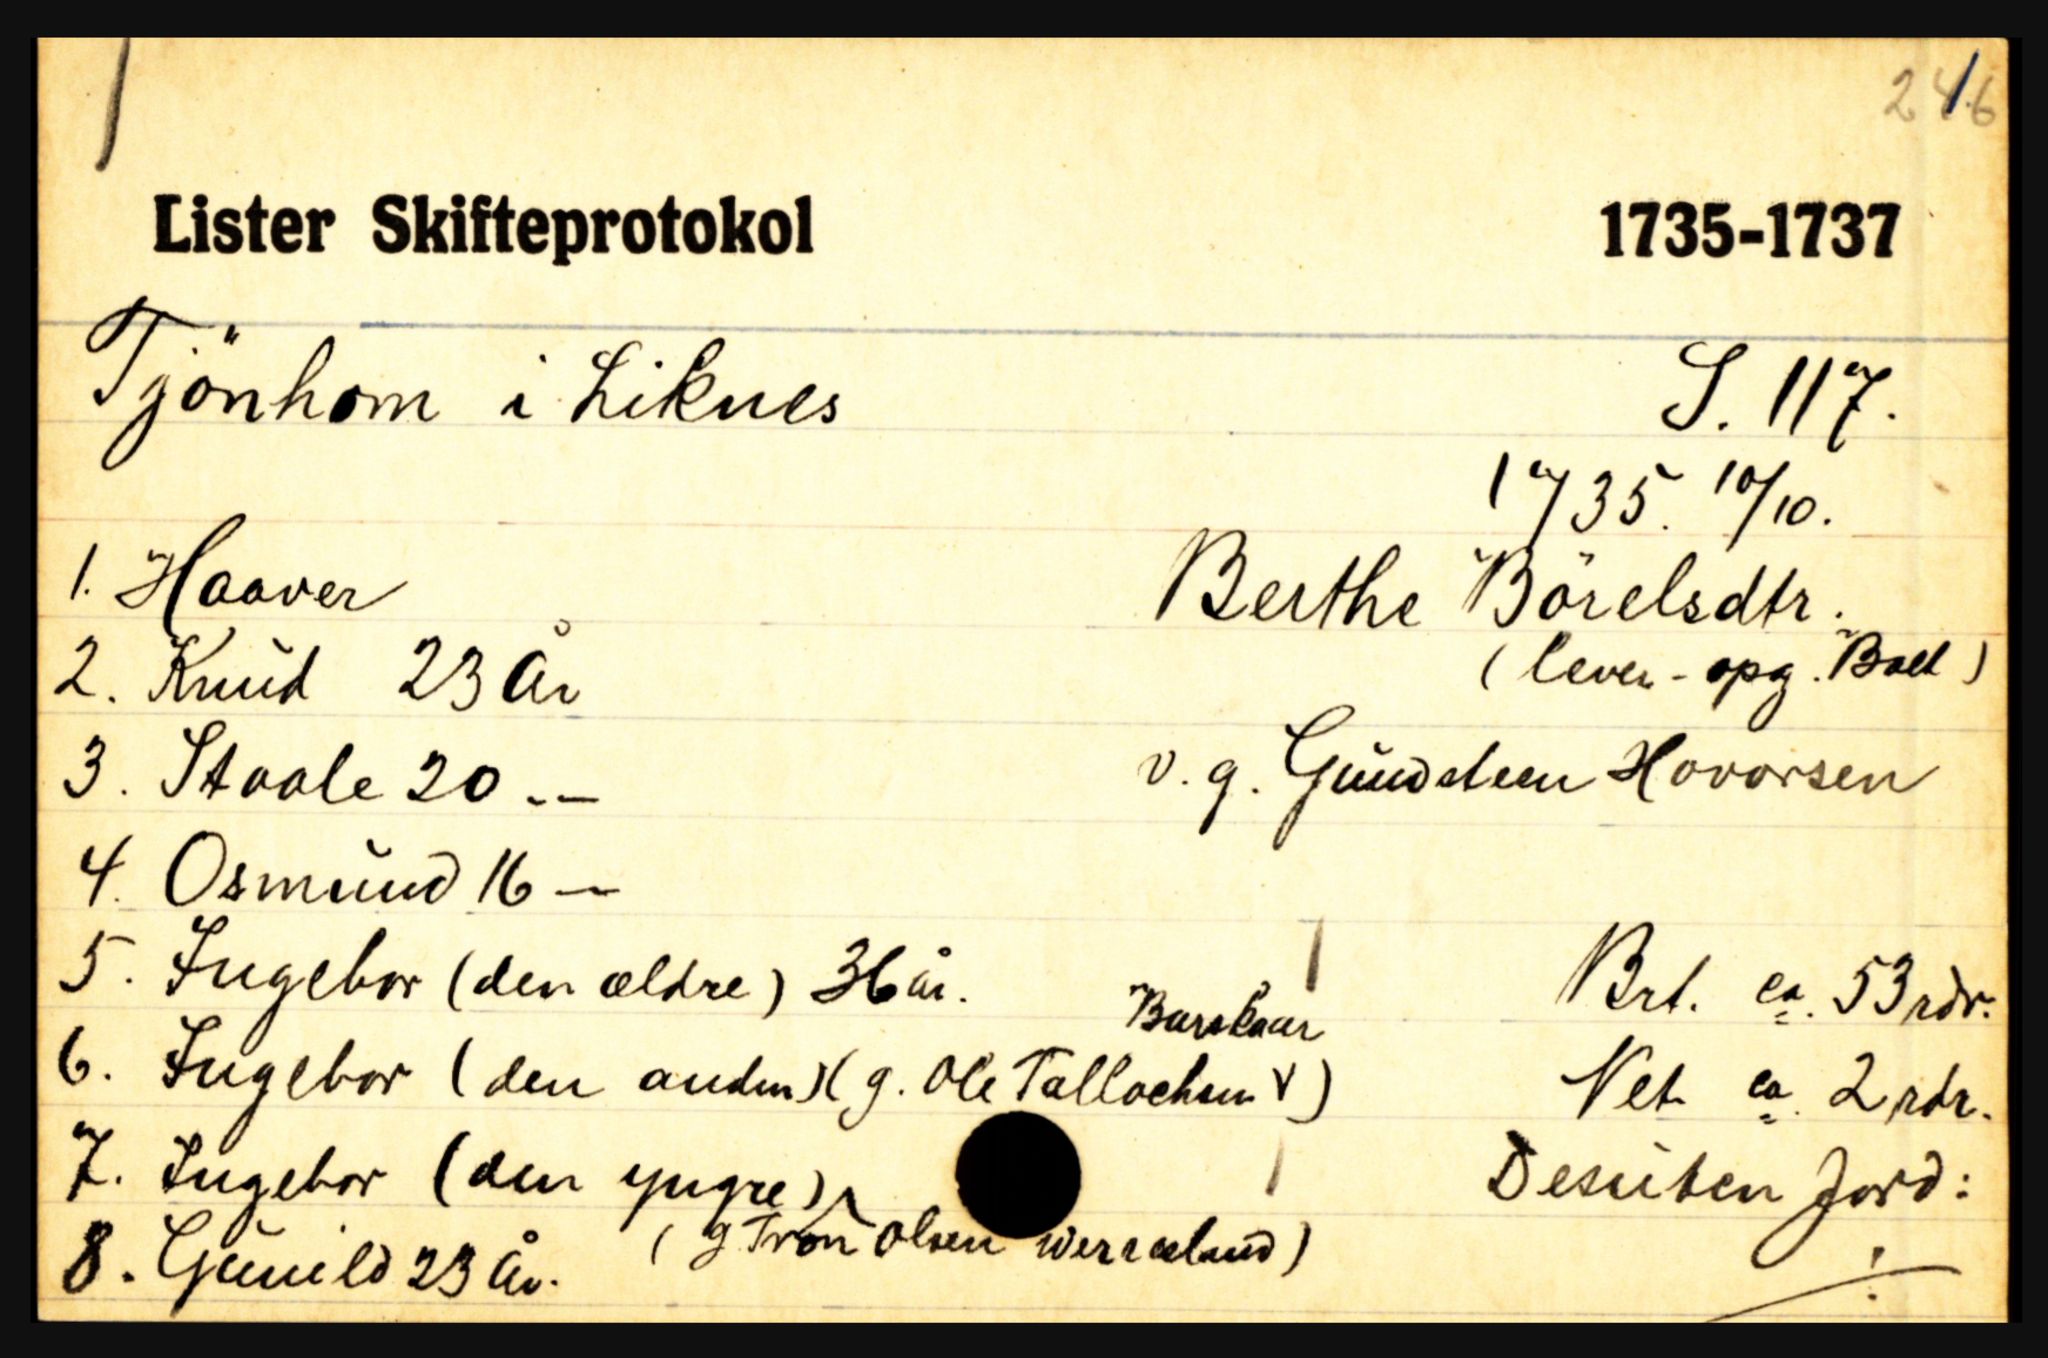 246
Lister Skifteprotokol 1735-1737
Tjönhom i Liknes S. 117.
1735. 10/10.
1. Haaver Berthe Börelsdtr.
2. Knŭd 23 År (lever - opg. Boet)
3. Staale 20 -- v. g. Gŭndsteen Hovorsen
4. Osmŭnd 16 —
5. Ingebor (den ældre) 36 år. Brt. ca. 53 rdr.
6. Ingebor (den anden) (g. Ole Tallachsen v) Net ca. 2 rdr.
7. Ingebor (den yngre) Desŭten Jord:
(g. Tron Olsen )
8. Gŭnild 23 År.